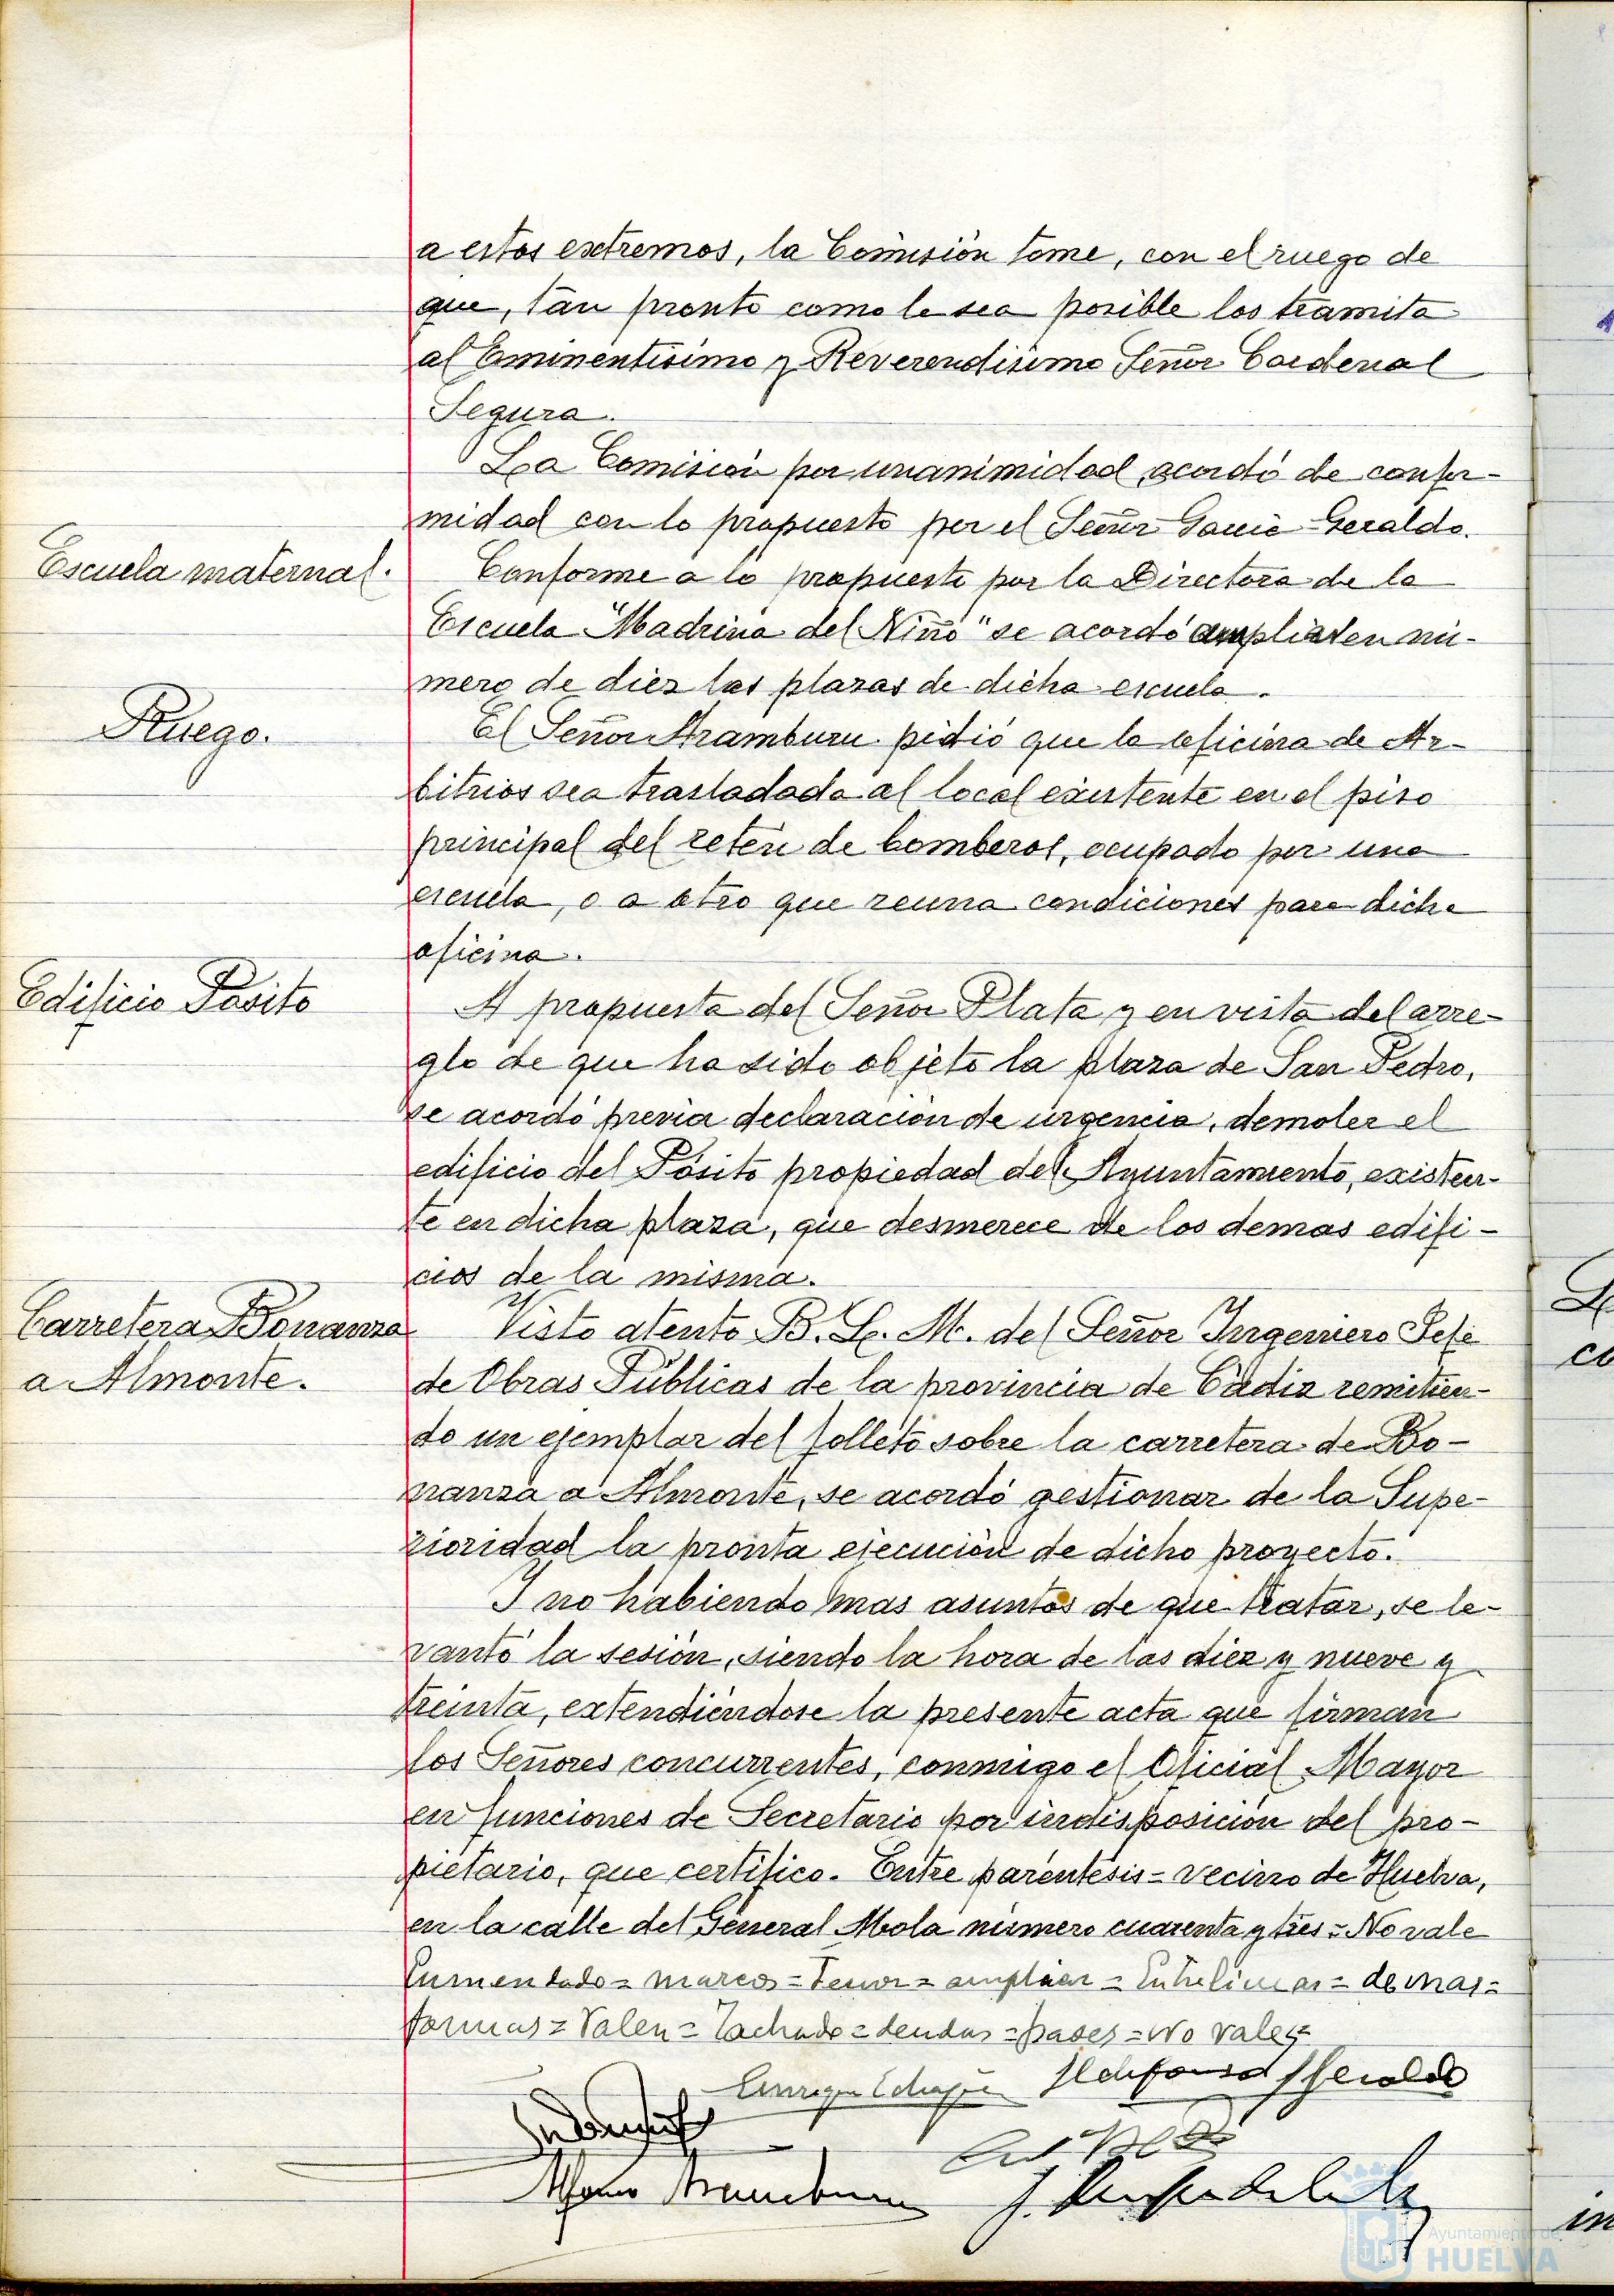 a estos extremos, la Comisión tome, con el ruego de
que, tan pronto como le sea posible los tramita
al Eminentísimo y Reverendísimo Señor Cardenal
Segura.
La Comisión por unanimidad, acordó de confor-
midad con lo propuesto por el Señor Geraldo.
Escuela maternal.
Conforme a lo propuesto por la Directora de la
Escuela "Madrina del Niño" se acordó ampliar en nú-
mero de diez las plazas de dicha escuela.
Ruego.
El Señor Aramburu pidió que la oficina de Ar-
bitrios sea trasladada al local existente en el piso
principal del retén de bomberos, ocupado por una
escuela, o a otro que reuna condiciones para dicha
oficina.
Edificio Pósito
A propuesta del Señor Plata y en vista del arre-
glo de que ha sido objeto la plaza de San Pedro,
se acordó previa declaración de urgencia, demoler el
edificio del Pósito propiedad del Ayuntamiento, existen-
te en dicha plaza, que desmerece de los demas edifi-
cios de la misma.
Carretera Bonanza
a Almonte.
Visto atento B. L. M. del Señor Ingeniero Jefe
de Obras Públicas de la provincia de Cádiz remitien-
do un ejemplar del folleto sobre la carretera de Bo-
nanza a Almonte, se acordó gestionar de la Supe-
rioridad la pronta ejecución de dicho proyecto.
Y no habiendo mas asuntos de que tratar, se le-
vantó la sesión, siendo la hora de las diez y nueve y
treinta, extendiéndose la presente acta que firman
los Señores concurrentes, conmigo el Oficial Mayor
en funciones de Secretario por indisposición del pro-
pietario, que certifico. Entre paréntesis = vecino de Huelva,
en la calle del General Mola número cuarenta y tres = No vale
Enmendado = marcos = Tenor = ampliar = Entrelineas = demas =
formas = Valen = Tachado = deudas = pases = No valen =
Ildefonso Geraldo
Alfonso Aramburu
Ayuntamiento de
HUELVA